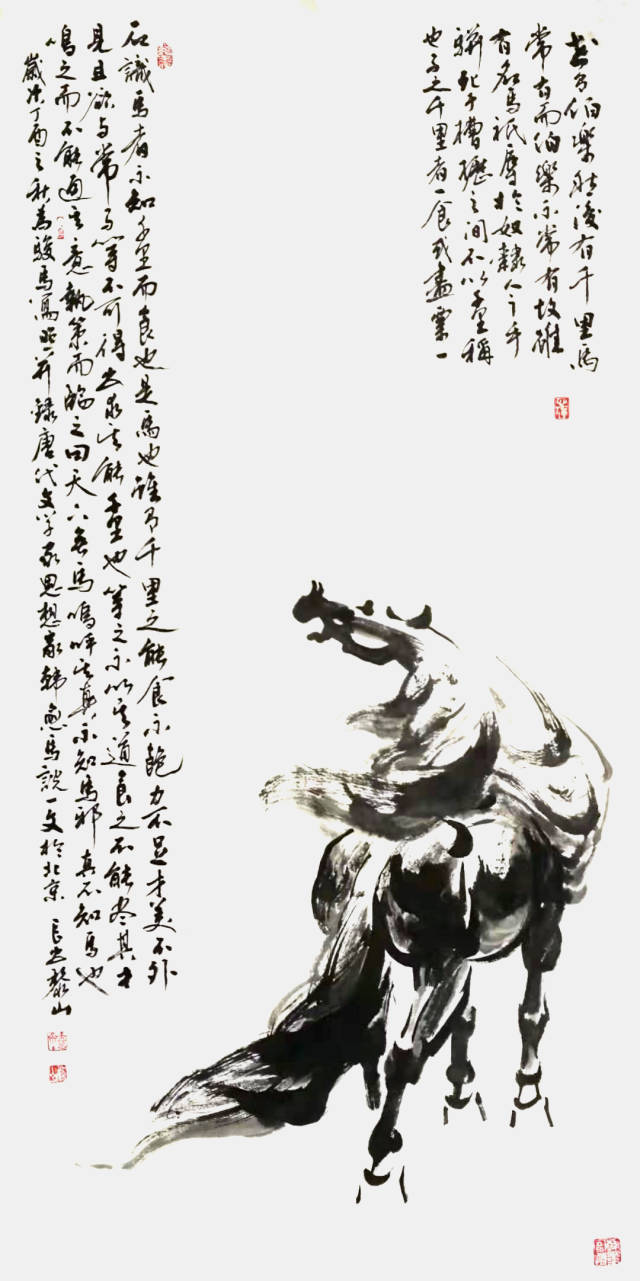 世有伯樂然後有千里馬
常有而伯樂不常有故雖
有名馬祇辱於奴隸人之手
駢死于槽櫪之間不以千里稱
也馬之千里者一食或盡粟一
石識馬者不知千里而食也是馬也雖有千里之能食不飽力不足才美不外
見且欲与常馬等不可得安求其能千里也策之不以其道食之不能尽其才
鳴之而不能通其意執策而臨之曰天下無馬嗚呼其真不知馬邪真不知馬也
歲次丁酉之秋為駿馬寫照并錄唐代文学家思想家韓愈馬說一文於北京